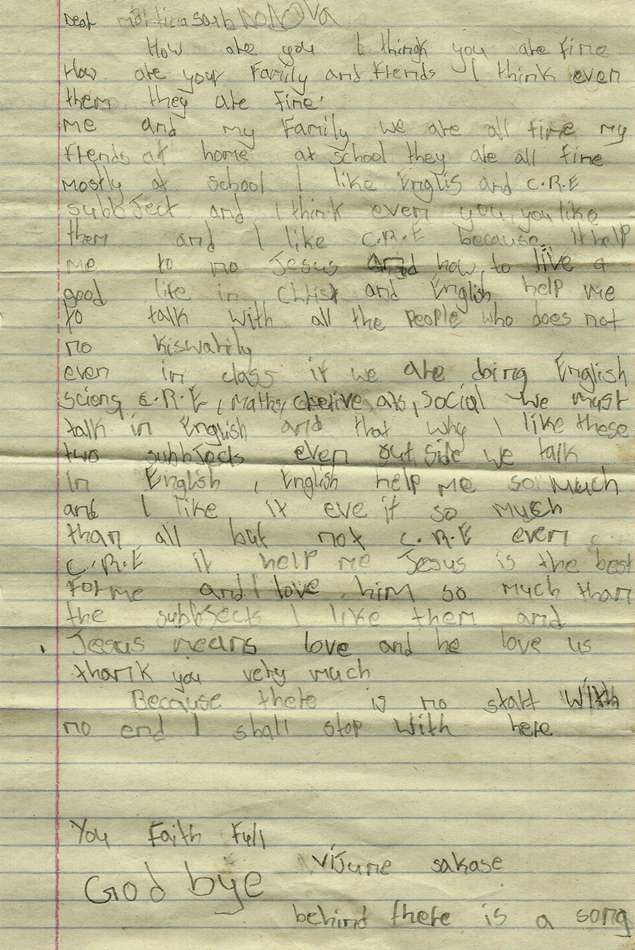 Dear
How are you I thingk you are fine
How are your Family and friends I think even
them they are fine.
me and my Family we are all fine my
friends at home at school they are all fine
mostly at school I like Englis and C.R.E
subbJect and I think even you, you like
them and I like C.R.E because it help
me to no Jesus and how to live a
good life in Christ and English help me
to talk with all the people who does not
no kiswarily
even in class if we are doing English
sciens, C.R.E, Maths, cretive, ats, social we must
talk in English and that why I like these
two subbJects even out side we talk
in English, English help me so much
and I like it eve if so much
than all but not C.R.E even
C.R.E it help me Jesus is the best
For me and I love him so much than
the subbJects I like them and
Jesus means love and he love us
thank you very much
Because there is no start with
no end I shall stop with here
You Faith Full
Vijune sakase
God bye
behind there is a song